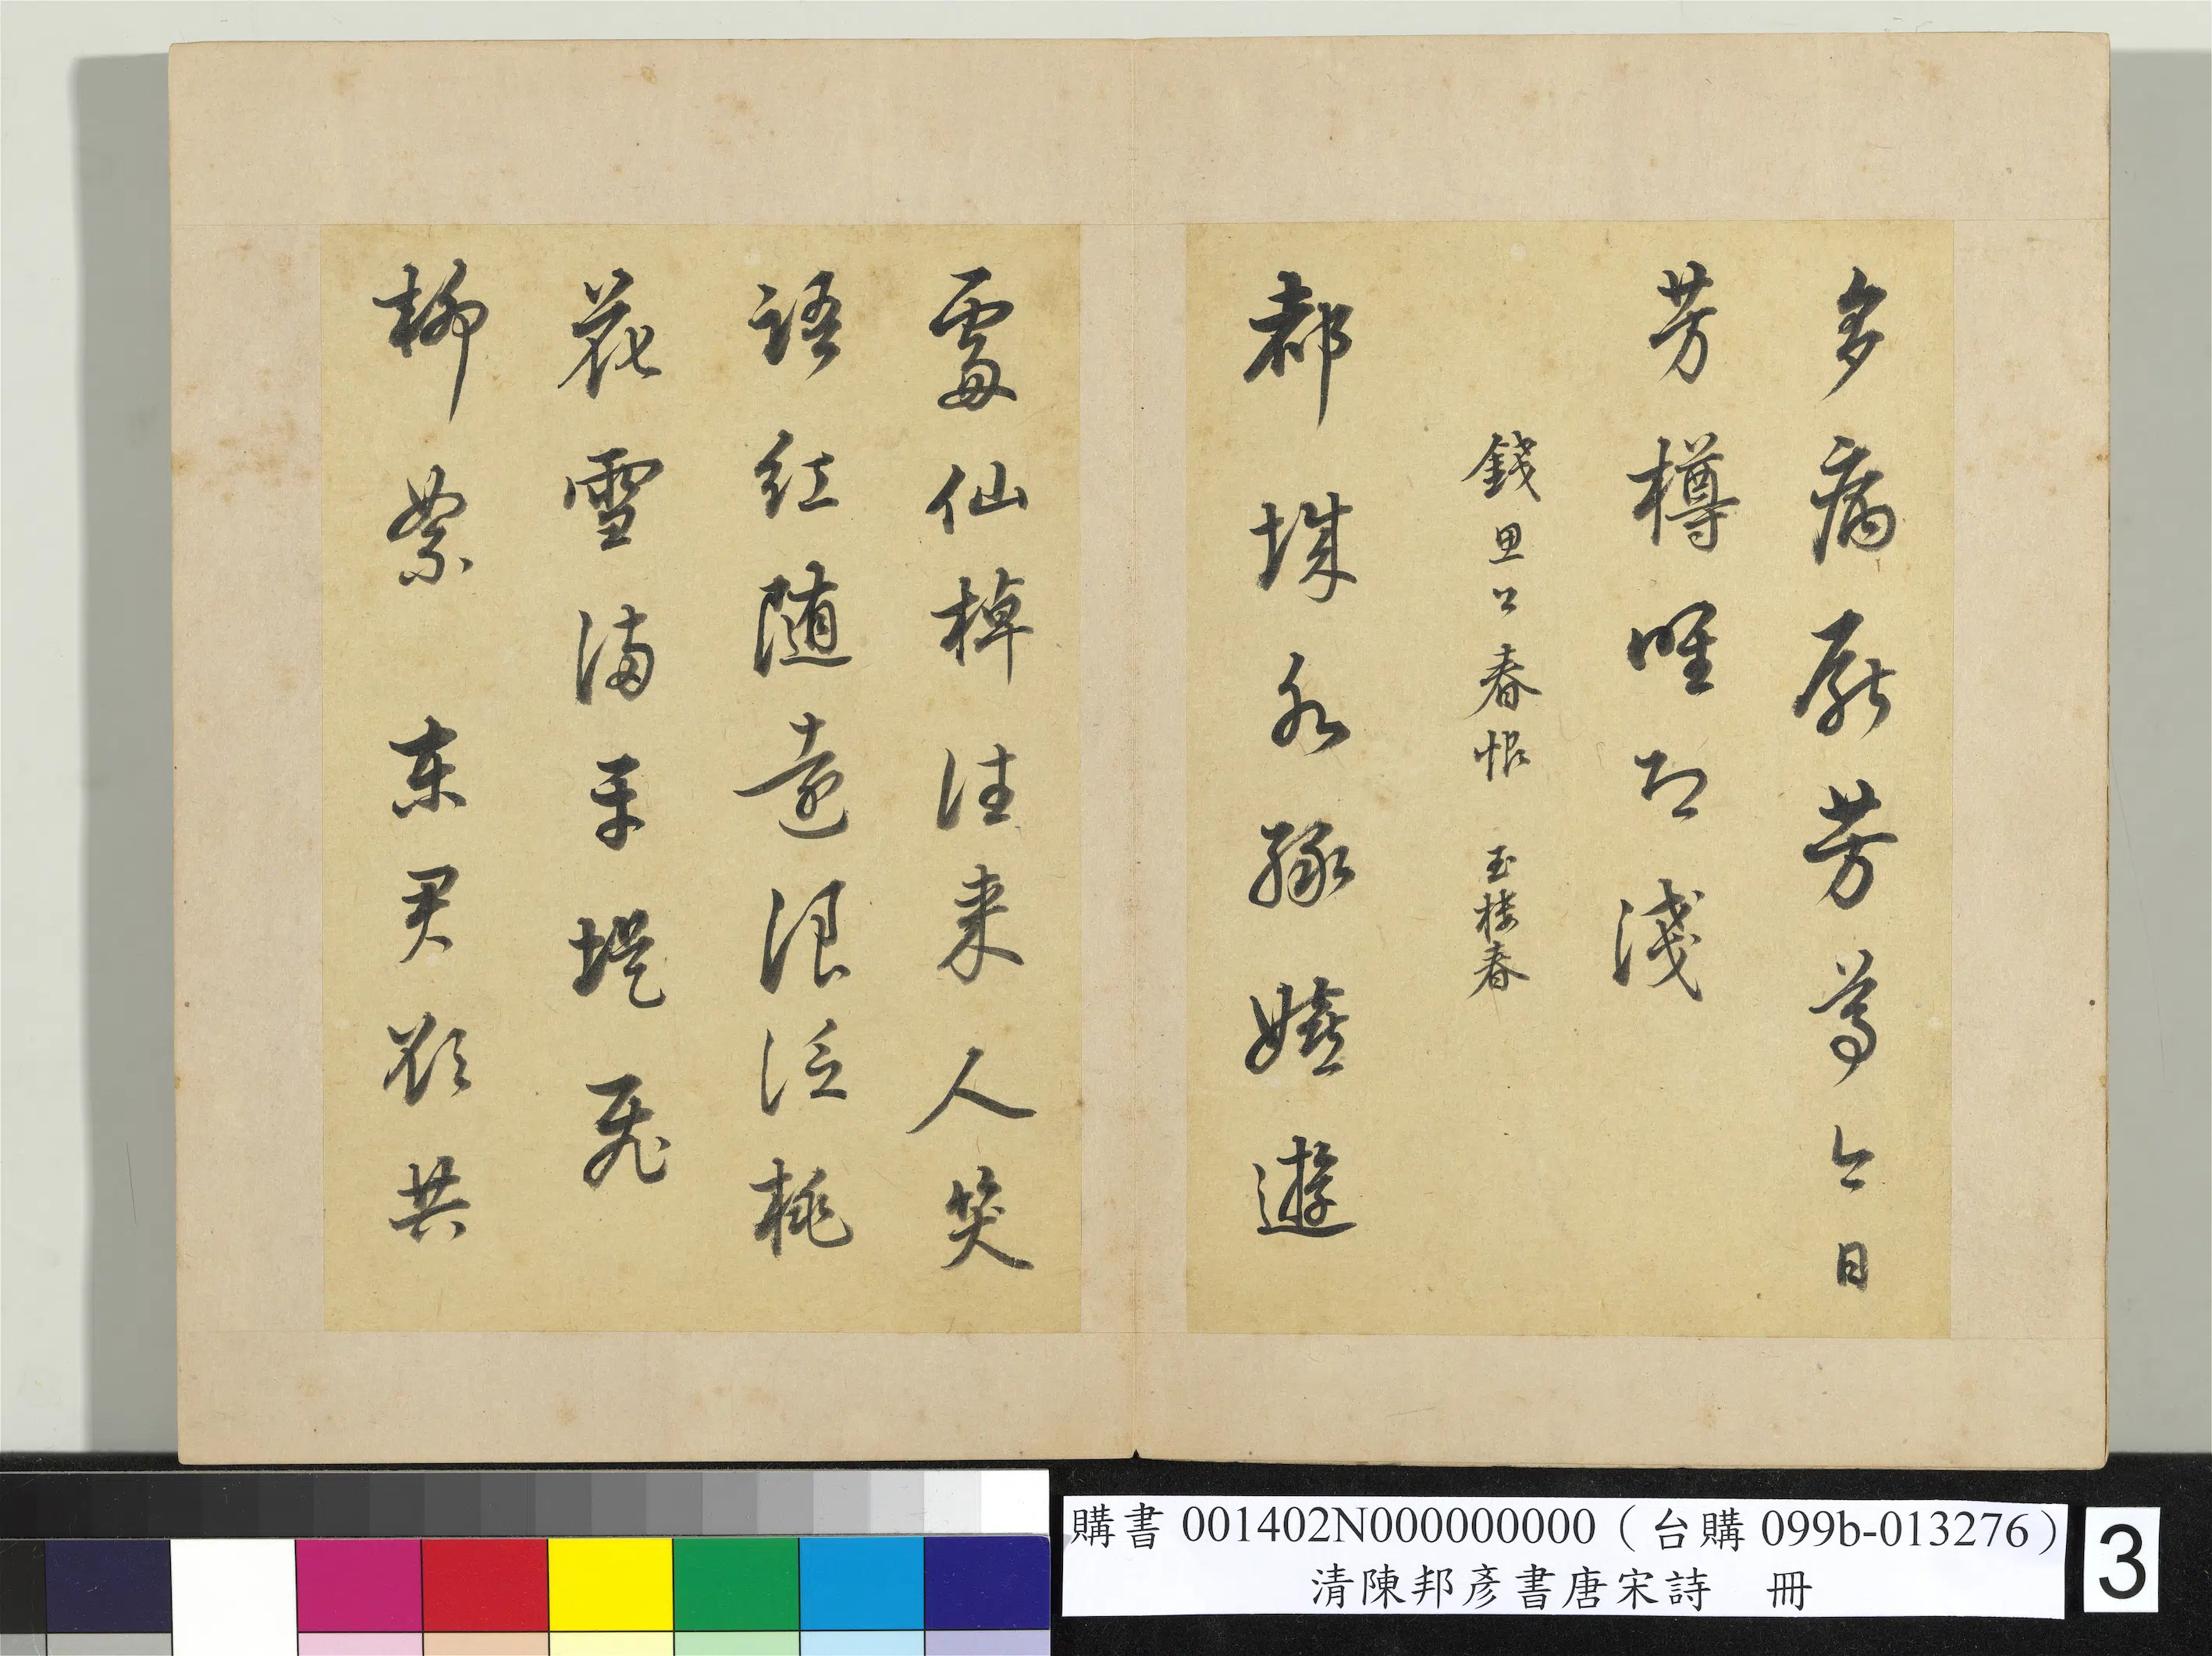 多病厭芳尊今日
芳樽唯恐淺
錢思公春恨 玉樓春
都城水綠嬉遊
處仙棹往來人笑
語紅隨遠浪泛桃
花雪滿平堤飛
柳絮 東君欲共
購書 001402N000000000（台購 099b-013276）
清陳邦彥書唐宋詩 冊
3